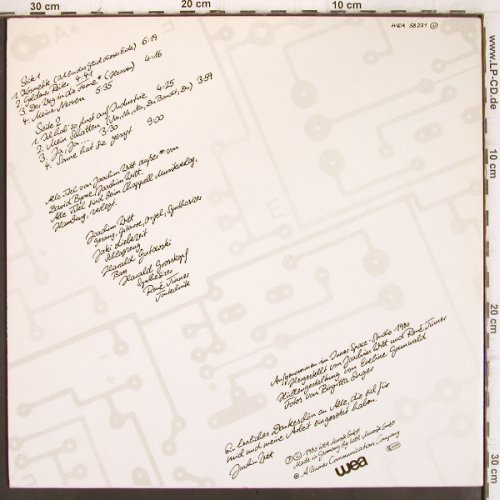 30 cm
20 cm
10 cm
WEA 58231
www.LP-CD.de
10 cm
20 cm
30 cm
Seite 1
1. Kosmetik (Ich bin das Glück dieser Erde) 6:19
2. Goldene Reiter 4:41
3. Der Weg in die Ferne * (Heaven) 4:16
4. Meine Nerven 5:35
Seite 2
1. Ich hab' so Lust auf Industrie 4:25
2. Mein Schatten 3:59
3. Ja, ja... 3:30
4. Sonne hat sie gesagt 9:00
Alle Titel von Joachim Witt außer * von
David Byrne/Joachim Witt.
Alle Titel sind beim Chappell Musikverlag,
Hamburg, verlegt.
Joachim Witt
Gesang, Gitarre, Orgel, Synthesizer
Jaki Liebezeit
Schlagzeug
Harald Gutowski
Bass
Harald Grosskopf
Synthesizer
René Tinner
Tontechnik
Aufgenommen im Inner Space-Studio 1980
Hergestellt von Joachim Witt und René Tinner
Hüllengestaltung von Eveline Grunwald
Fotos von Birgitta
Ein herzliches Dankeschön an Alle, die sich für
mich und meine Arbeit eingesetzt haben.
Joachim Witt
℗ © 1980 WEA Musik GmbH
Made in Germany by WEA Musik GmbH
A Warner Communications Company
wea